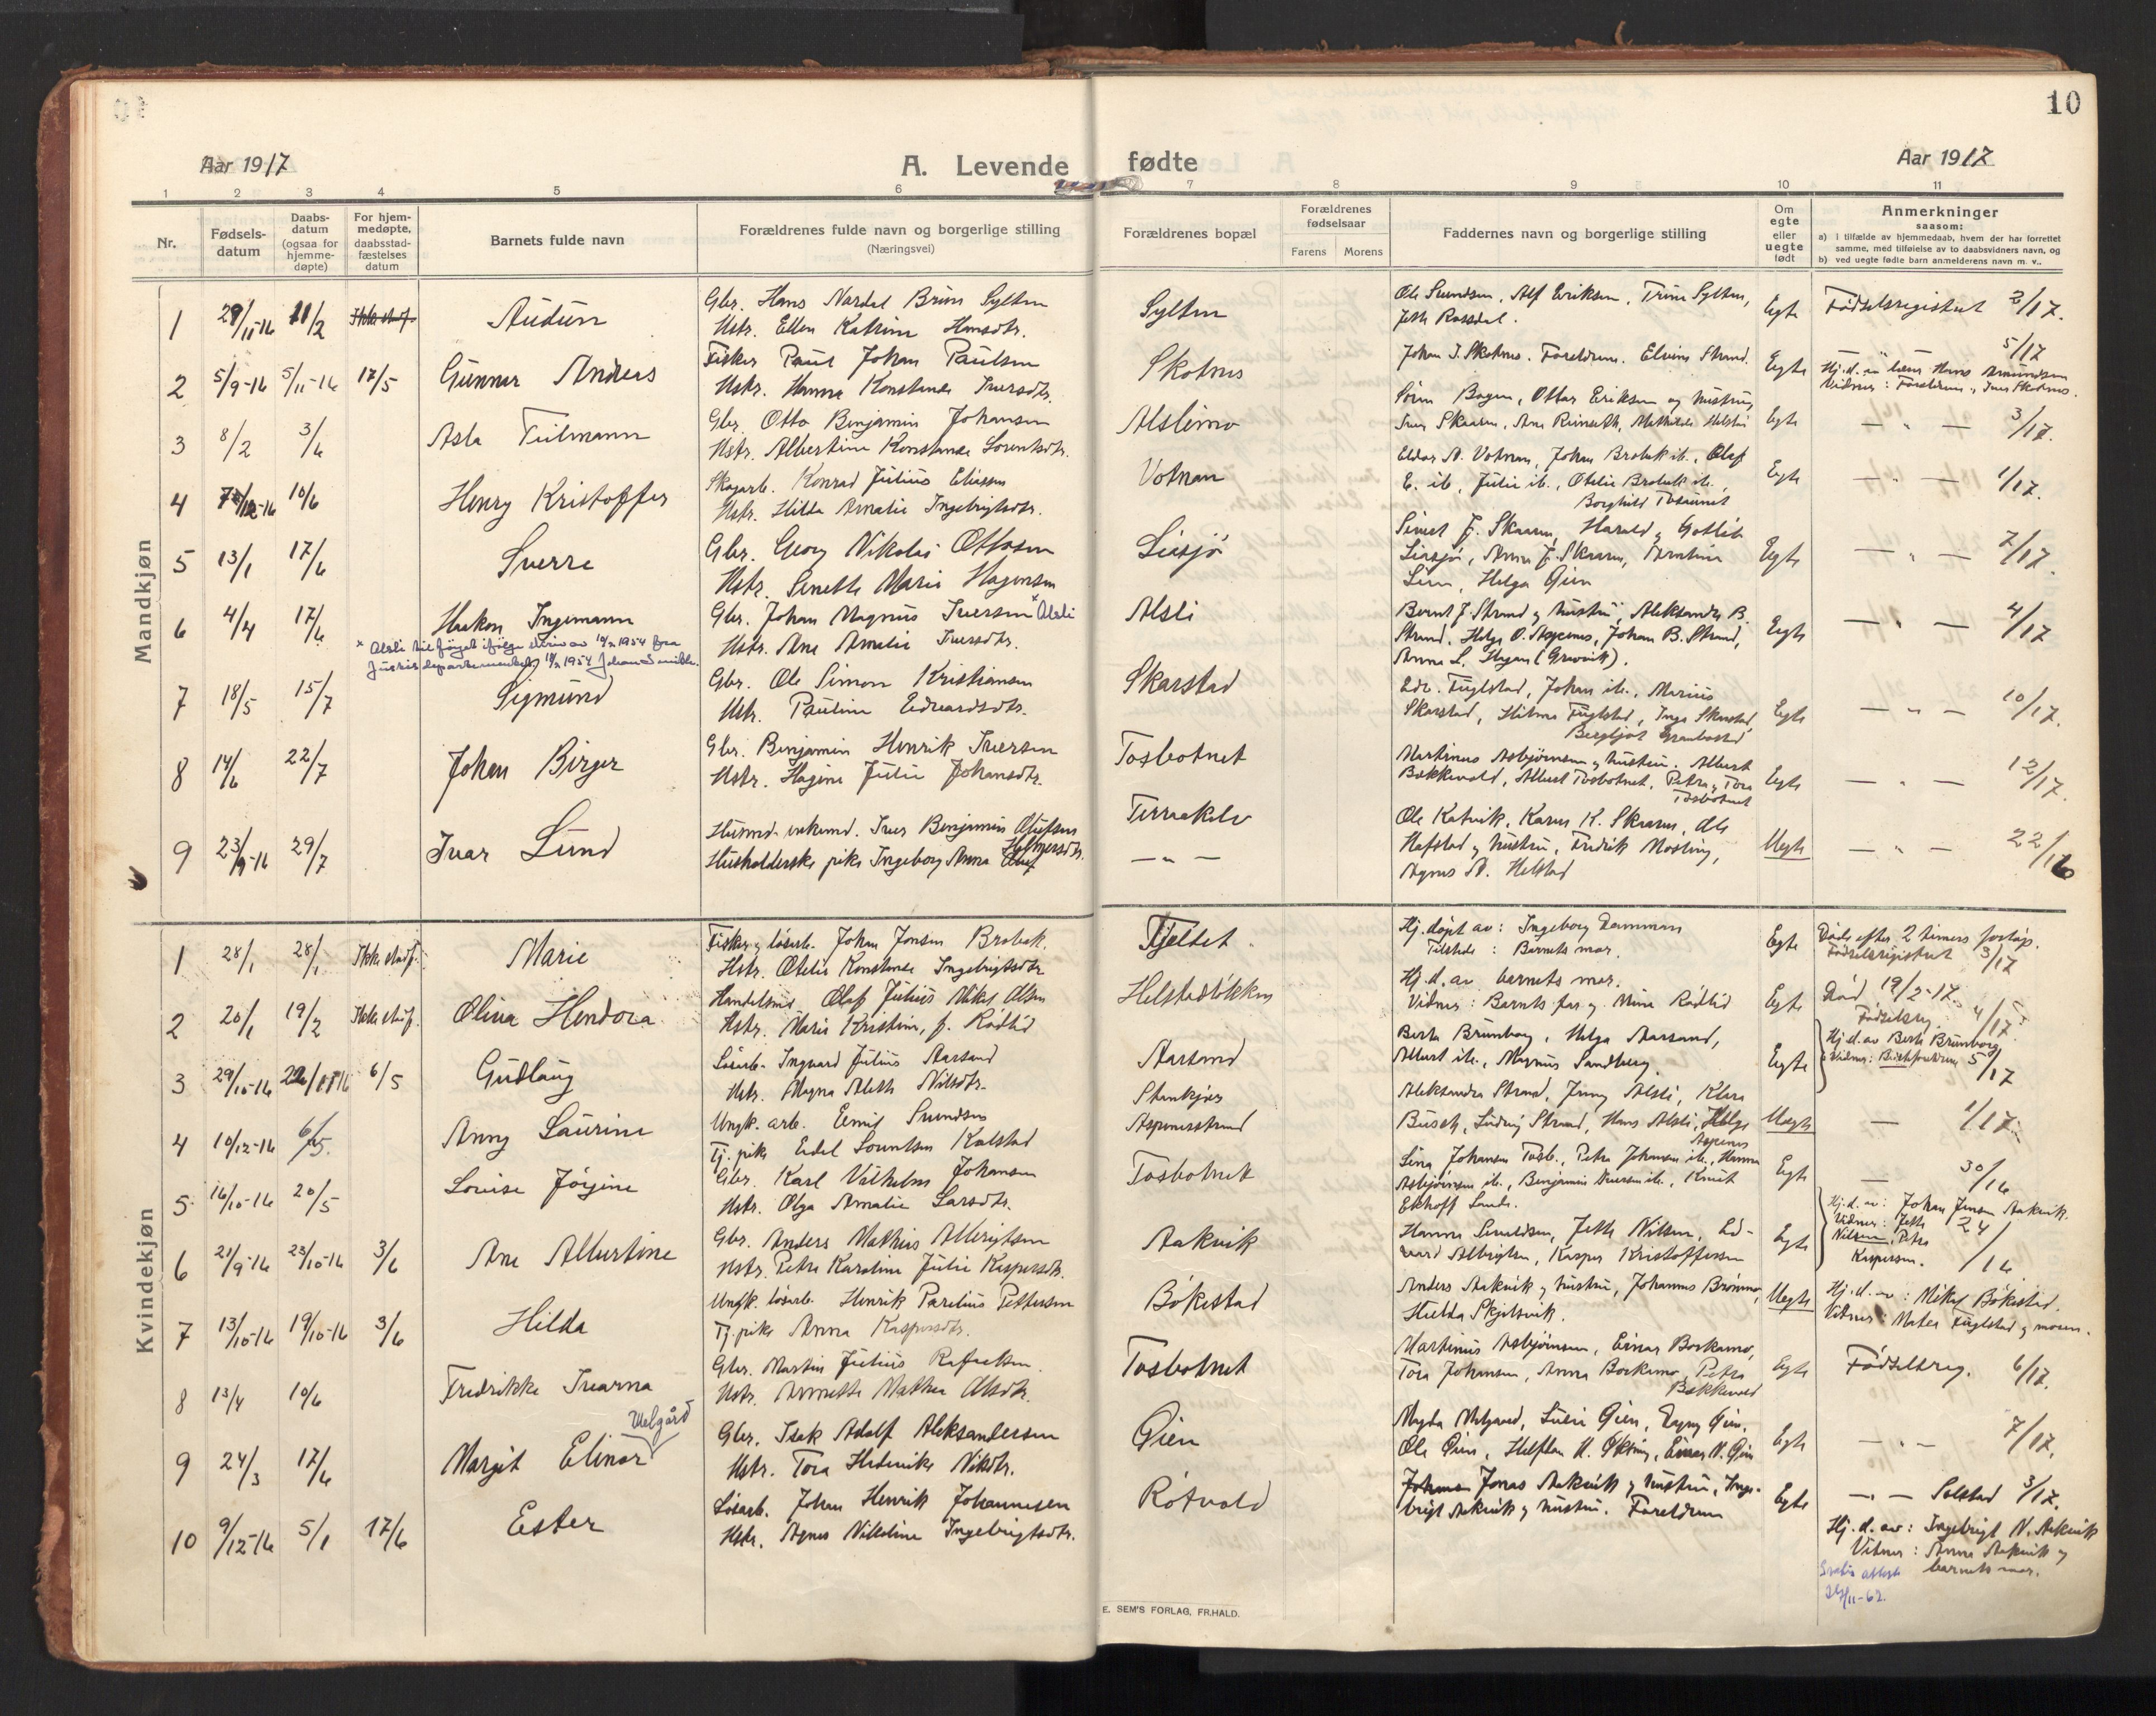 10
Aar 1917
A. Levende fødte
Aar 1917
1 2 3 4 5 6 7 8 9 10 11
Nr.
Fødselsdatum
Daabsdatum (ogsaa for hjemmedøpte)
For hjemmedøpte, daabsstadfæstelses datum
Barnets fulde navn
Forældrenes fulde navn og borgerlige stilling
(Næringsvei)
Forældrenes bopæl
Forældrenes fødselsaar
Farens Morens
Faddernes navn og borgerlige stilling
Om egte eller uegte født
Anmerkninger
saasom:
a) i tilfælde av hjemmedaab, hvem der har forrettet
samme, med tilføielse av to daabsvidners navn, og
b) ved uegte fødte barn anmelderens navn m. v..
Mandkjøn
1 29/11-16 11/2 Audun
Gbr. Hans Nordal Bruun Sylten
Hstr. Ellen Katrine Hansdtr.
Sylten
Ole Svendsen, Alf Eriksen, Trine Sylten,
Egte Fødselsregistret 2/17.
2 5/9-16 5/11-16 17/5 Gunnar Andreas
Fisker Paul Johan Paulsen
Hstr. Hanna Konstanse Iversdtr.
Skotnes
Johan J. Skotnes. Foreldrene. Elvine Strand.
Egte 5/17
Hj.d. av lærer Hans Amundsen
Vidner: Foreldrene, Iver Skotnes.
3 8/2 3/6 Asla Tilmann
Gbr. Otto Benjamin Johansen
Hstr. Albertine Konstanse Lorentsdtr.
Alslimo
Søren Bogen, Ottar Eriksen og hustru,
Iver Skaaren, Ane Reinseth, Mathilde Helstad
Egte — " — 3/17.
4 7/12-16 10/6 Henry Kristoffer
Skogarb. Konrad Julius Eliassen
Hstr. Hilda Amalie Ingebrigtsdtr.
Votnan
Eldar A. Votnan, Johan Brobak ib., Olaf
E. ib, Julie ib., Otelie Brobak ib.,
Borghild Tosaunet
Egte 1/17.
5 13/1 17/6 Sverre
Gbr. Georg Nikolai Ottosen
Hstr. Senette Marie Hagensen
Liasjø
Sivert J. Skaaren, Harald & Gotlib
Liasjø, Anna J. Skaaren,
Lien, Helga Gien
Egte — " — 2/17.
6 4/4 17/6 Haakon Ingemann
Gbr. Johan Magnus Iversen * Alsli
Hstr. Ane Amalie Iversdtr.
* Alsli tilføiet ifølge skriv av 10/x 1954 fra
Justisdepartementet,
Alsli
Bernt J. Strand & hustru, Aleksander B.
Strand, Helge O. Aspenes, Johan B. Strand,
Anna L. Hagen
Egte — " — 4/17
7 18/5 15/7 Sigmund
Gbr. Ole Simon Kristiansen
Hstr. Pauline Edvardsdtr.
Skarstad
Edv. Fuglstad, Johan ib., Marius
Skarstad, Hilma Fuglstad, Inga Skarstad,
Bergljot
Egte — " — 10/17.
8 14/6 22/7 Johan Birger
Gbr. Benjamin Henrik Iversen
Hstr. Hagine Julie Johansdtr.
Tosbotnet
Martinus Asbjørnsen & hustru. Albert
Bækkevold, Albert Tosbotnet, Petra & Tora
Tosbotnet
Egte — " — 12/17.
9 23/9-16 29/7 Ivar Lund
Husmd. enkemd. Iver Benjamin Olufsen
Husholderske pike Ingeborg Anna Helmersdtr.
Terraakelv
— " —
Ole Kalvik, Karen K. Skaaren, Ole
Hafstad & hustru, Fredrik Mosling,
Agnes A. Helstad
Uegte — " — 22/16
Kvindekjøn
1 28/1 28/1 Ikke stadf. Marie
Fisker & løsarb. Johan Jonsen Brobak.
Hstr. Otelie Konstanse Ingebrigtsdtr
Fjeldet
Hj. døpt av: Ingeborg Dammen
Tilstede: Barnets mor.
Egte
Døde efter 2 timers forløp.
Fødselsregistret 3/17
2 20/1 19/2 Ikke stadf. Olina Hendora
Handelsmd. Olaf Julius Mikal Olsen
Hstr. Marie Kristine, f. Rødlid
Helstadløkken
Hj. d. av barnets mor.
Vidner: Barnets far og Mina Rødlid
Egte
Død 19/2-17.
Fødselsreg. 4/17
3 29/10-16 22/11 16 6/5 Gudlaug
Løsarb. Ingvard Julius Aarsand
Hstr. Magna Aleth Nilsdtr.
Aarsand
Berta Brunborg, Helga Aarsand,
Albert ib., Magnus Sandberg.
Egte
Hj.d. av Berta Brunborg
Vidner: foreldrene 5/17
4 10/12-16 6/5. Anny Laurine
Ungk. arb. Emil Svendsen
Tj. pike Edel Lorentsen Kalstad
Stenkjær
Aspenesstrand
Aleksandra Strand, Jenny Alsli, Klara
Busch, Ludvig Strand, Hans Alsli, Helge
Aspenes
Uegte — 1/17
5 16/10-16 20/5 Lovise Jørgine
Gbr. Karl Vilhelm Johansen
Hstr. Olga Amalie Larsdtr.
Tosbotnet
Lina Johansen Tosb., Petra Johansen ib., Hanna
Asbjørnsen ib., Benjamin Iversen ib., Knut
Ekhoff Lande.
Egte — 30/16
6 21/9-16 23/10-16 3/6 Ane Albertine
Gbr. Anders Mathias Albrigtsen
Hstr. Petra Karoline Julie Kaspersdtr.
Aakvik
Hanna Sivertsen, Jette Nilsen, Ed-
vard Albrigtsen, Kasper Kristoffersen
Egte
Hj.d. av: Johan Jensen Aakvik.
Vidner: Jette
Nilsen, Petra
Kaspersen. 24/16
7 13/10-16 19/10-16 3/6 Hilda
Ungk. løsarb. Henrik Parelius Pettersen
Tj. pike Anna Kaspersdtr.
Bøkestad
Anders Aakvik & hustru, Johannes Brønmo,
Hulda Skjelsvik.
Uegte
Hj.d. av: Mikal Bøkestad.
Vidner: Matea Fuglstad & moren.
8 13/4 10/6 Fredrikke Ivarna
Gbr. Martin Julius Rafaelsen.
Hstr. Annette Mathea Olsdtr.
Tosbotnet
Martinus Asbjørnsen, Einar Borkamo,
Tora Johansen, Anna Borkamo, Petra
Bækkevold
Egte Fødselsreg. 6/17.
9 24/3 17/6 Margit Elinor Melgård
Gbr. Isak Adolf Aleksandersen
Hstr. Tora Hedevika Nilsdtr.
Øien
Magda Melgaard, Julie Øien,
Ole Øien,
Egte — " — 7/17.
10 9/12-16 5/1 17/6 Ester
Løsarb. Johan Henrik Johannesen
Hstr. Agnes Nikoline Ingebrigtsdtr.
Røtvold
Jonas Aakvik & hustru, Inge-
brigt Aakvik & hustru. Foreldrene
Egte — " — Solstad 3/17.
Hj. d. av: Ingebrigt N. Aakvik
Vidner: Anna Aakvik &
barnets mor.
E. SEM'S FORLAG, FR.HALD.